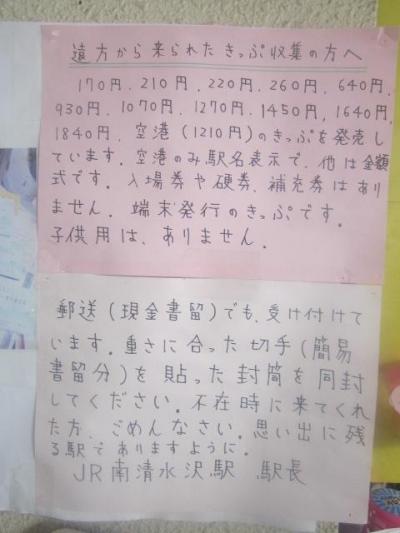 遠方から来られたきっぷ収集の方へ
170円.210円.220円.260円.640円.
930円.1070円.1270円.1450円,1640円,
1840円.空港(1210円)のきっぷを発売し
ています.空港のみ駅名表示で、他は金額
式です.入場券や硬券、補充券はあり
ません.端末発行のきっぷです。
子供用は、ありません.
郵送(現金書留)でも、受け付けて
います.重さに合った切手(簡易
書留分)を貼った封筒を同封
してください.不在時に来てくれ
た方、ごめんなさい.思い出に残
る駅でありますように.
JR南清水沢駅 駅長